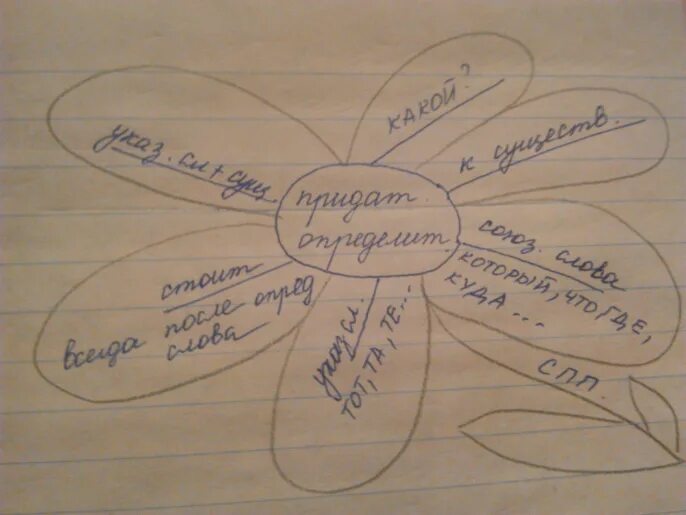 КАКОЙ?
к существ.
указ. сл + сущ.
придат.
определит.
союз. слова
который, что, где,
куда...
стоит
всегда после опред
слова
указ сл.
тот, та, те...
СПП.